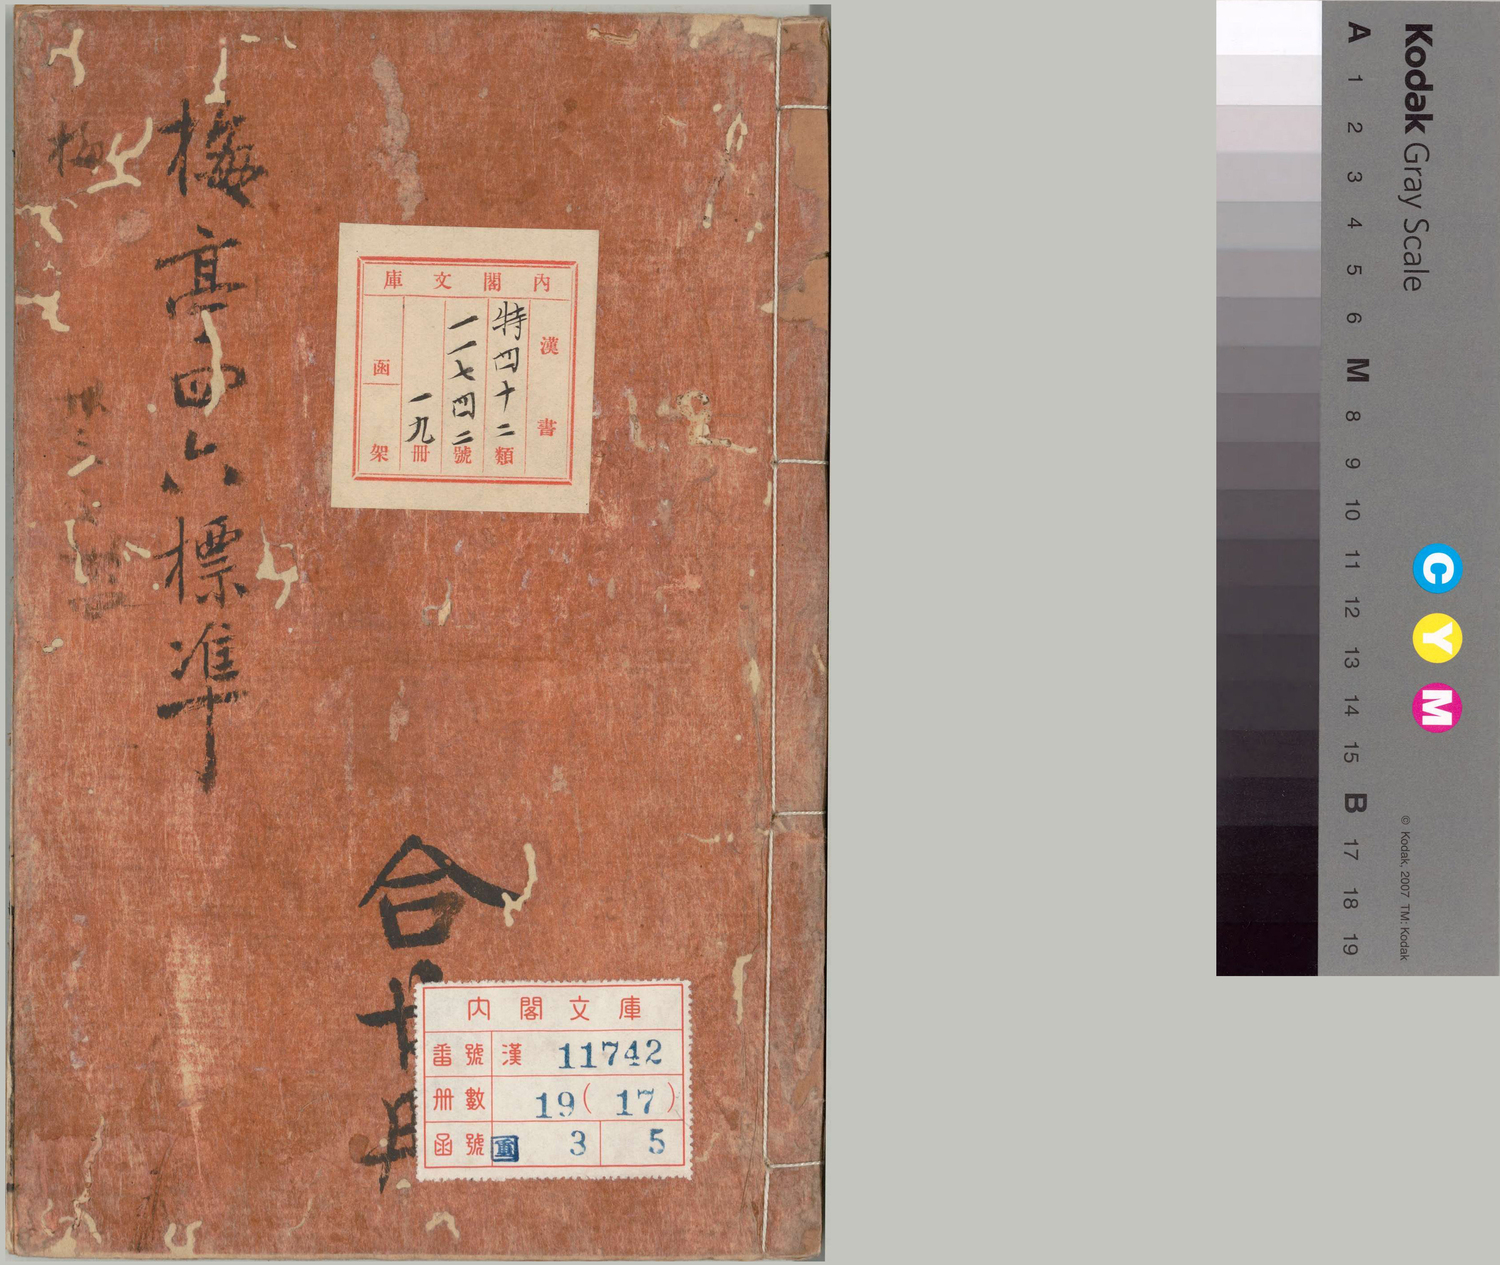 梅亭四六標準
梅
卅三
合十
内閣文庫
漢書
特四十二類
一一七四二號
一九冊
函
架
内閣文庫
番號 漢 11742
冊數 19(17)
函號 重 3 5
Kodak Gray Scale
A 1 2 3 4 5 6 M 8 9 10 11 12 13 14 15 B 17 18 19
C
Y
M
© Kodak, 2007 TM: Kodak